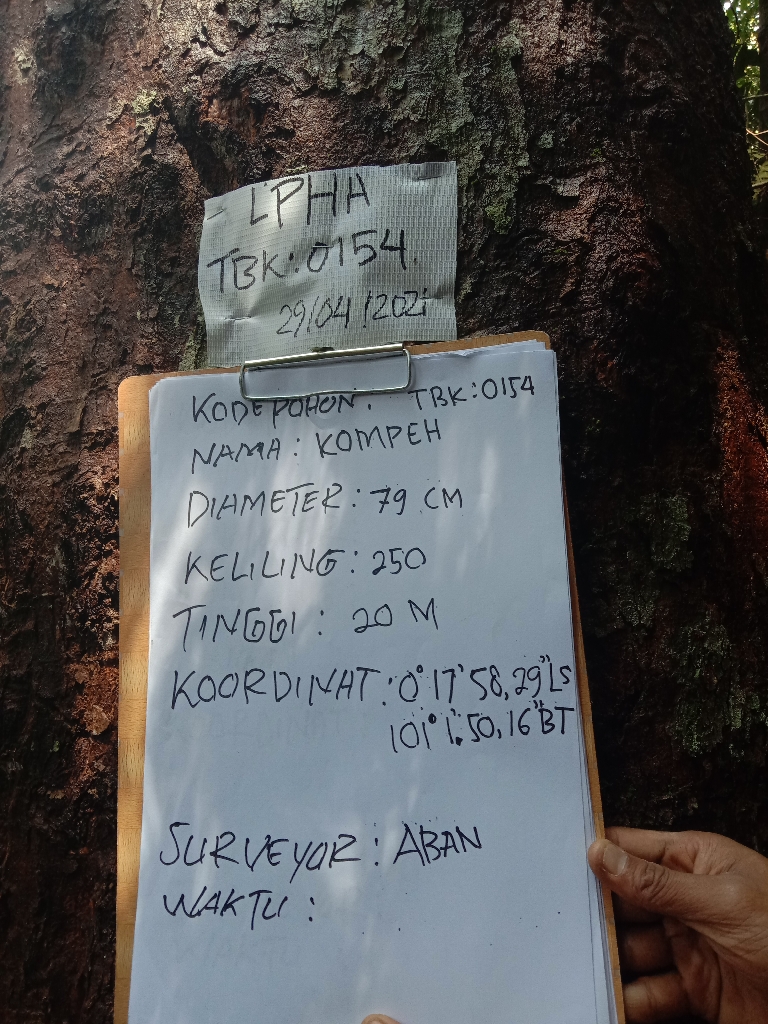 - LPHA
TBK: 0154
29/04/2021
KODE POHON: TBK: 0154
NAMA: KOMPEH
DIAMETER: 79 CM
KELILING: 250
TINGGI: 20 M
KOORDINAT: 0° 17' 58,29" LS
101° 1' 50,16" BT
SURVEYOR: ABAN
WAKTU: